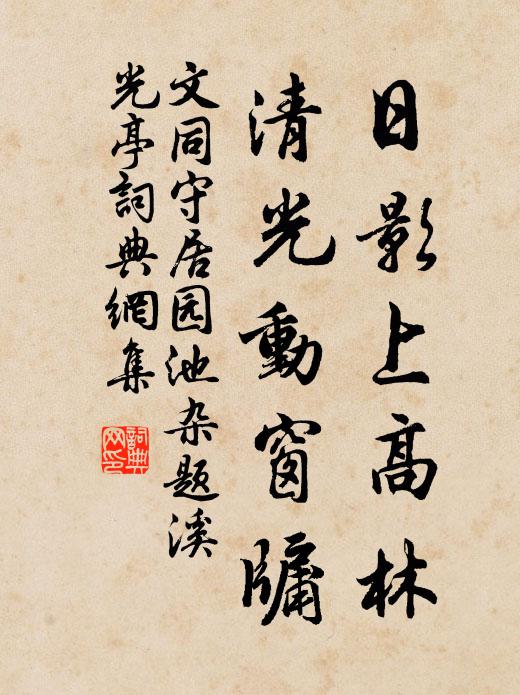 日影上高林
清光動窗牖
文同守居园池杂题溪
光亭詞典網集
詞典
网印